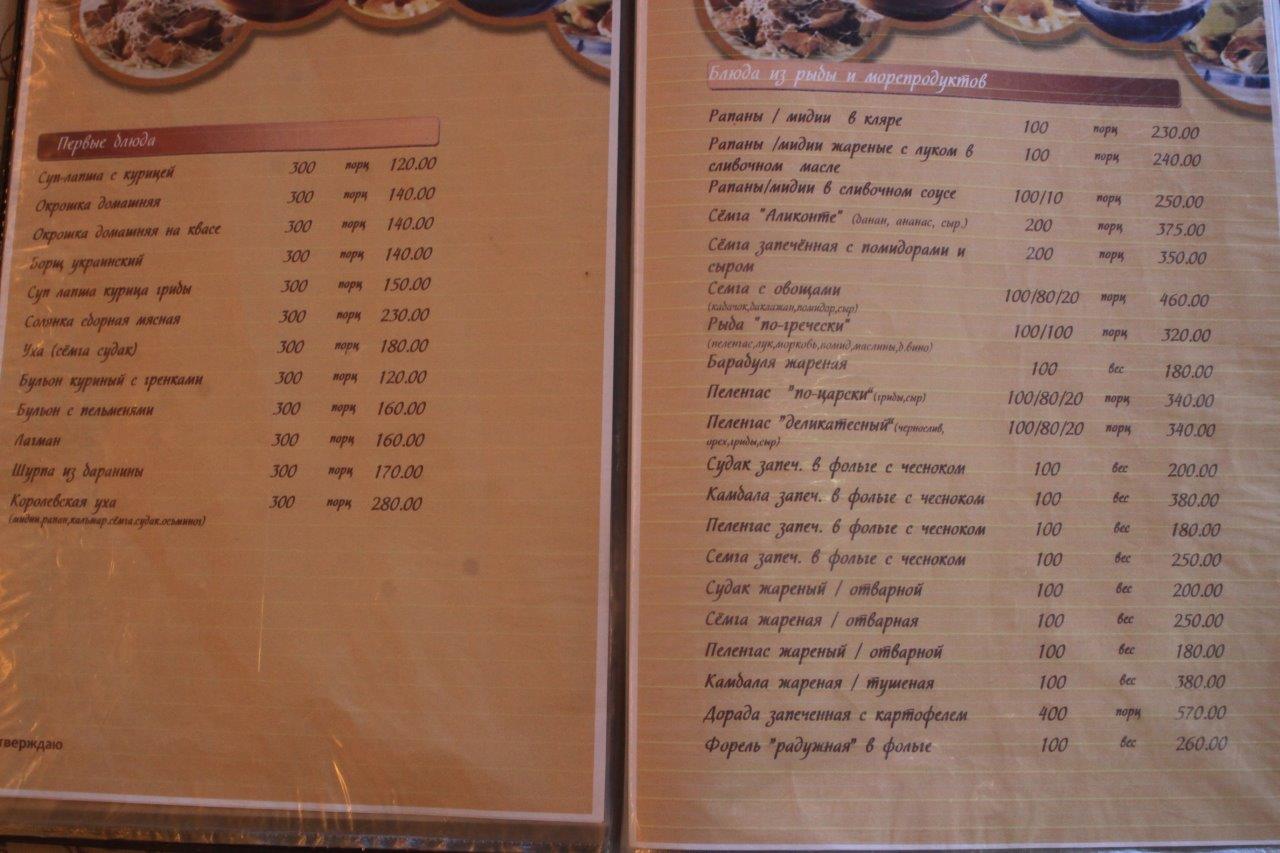 Первые блюда
Суп-лапша с курицей 300 порц 120.00
Окрошка домашняя 300 порц 140.00
Окрошка домашняя на квасе 300 порц 140.00
Борщ украинский 300 порц 140.00
Суп лапша курица грибы 300 порц 150.00
Солянка сборная мясная 300 порц 230.00
Уха (сёмга судак) 300 порц 180.00
Бульон куриный с гренками 300 порц 120.00
Бульон с пельменями 300 порц 160.00
Лагман 300 порц 160.00
Шурпа из баранины 300 порц 170.00
Королевская уха 300 порц 280.00
(мидии,рапан,кальмар,сёмга,судак,осьминог)
тверждаю
Блюда из рыбы и морепродуктов
Рапаны / мидии в кляре 100 порц 230.00
Рапаны /мидии жареные с луком в 100 порц 240.00
сливочном масле
Рапаны/мидии в сливочном соусе 100/10 порц 250.00
Сёмга "Аликонте" (банан, ананас, сыр.) 200 порц 375.00
Сёмга запечённая с помидорами и 200 порц 350.00
сыром
Семга с овощами 100/80/20 порц 460.00
(кабачок,баклажан,помидор,сыр)
Рыба "по-гречески" 100/100 порц 320.00
(пеленгас,лук,морковь,помид,маслины,б.вино)
Барабуля жареная 100 вес 180.00
Пеленгас "по-царски"(грибы,сыр) 100/80/20 порц 340.00
Пеленгас "деликатесный"(чернослив, 100/80/20 порц 340.00
орех,грибы,сыр)
Судак запеч. в фольге с чесноком 100 вес 200.00
Камбала запеч. в фольге с чесноком 100 вес 380.00
Пеленгас запеч. в фольге с чесноком 100 вес 180.00
Семга запеч. в фольге с чесноком 100 вес 250.00
Судак жареный / отварной 100 вес 200.00
Сёмга жареная / отварная 100 вес 250.00
Пеленгас жареный / отварной 100 вес 180.00
Камбала жареная / тушеная 100 вес 380.00
Дорада запеченная с картофелем 400 порц 570.00
Форель "радужная" в фольге 100 вес 260.00